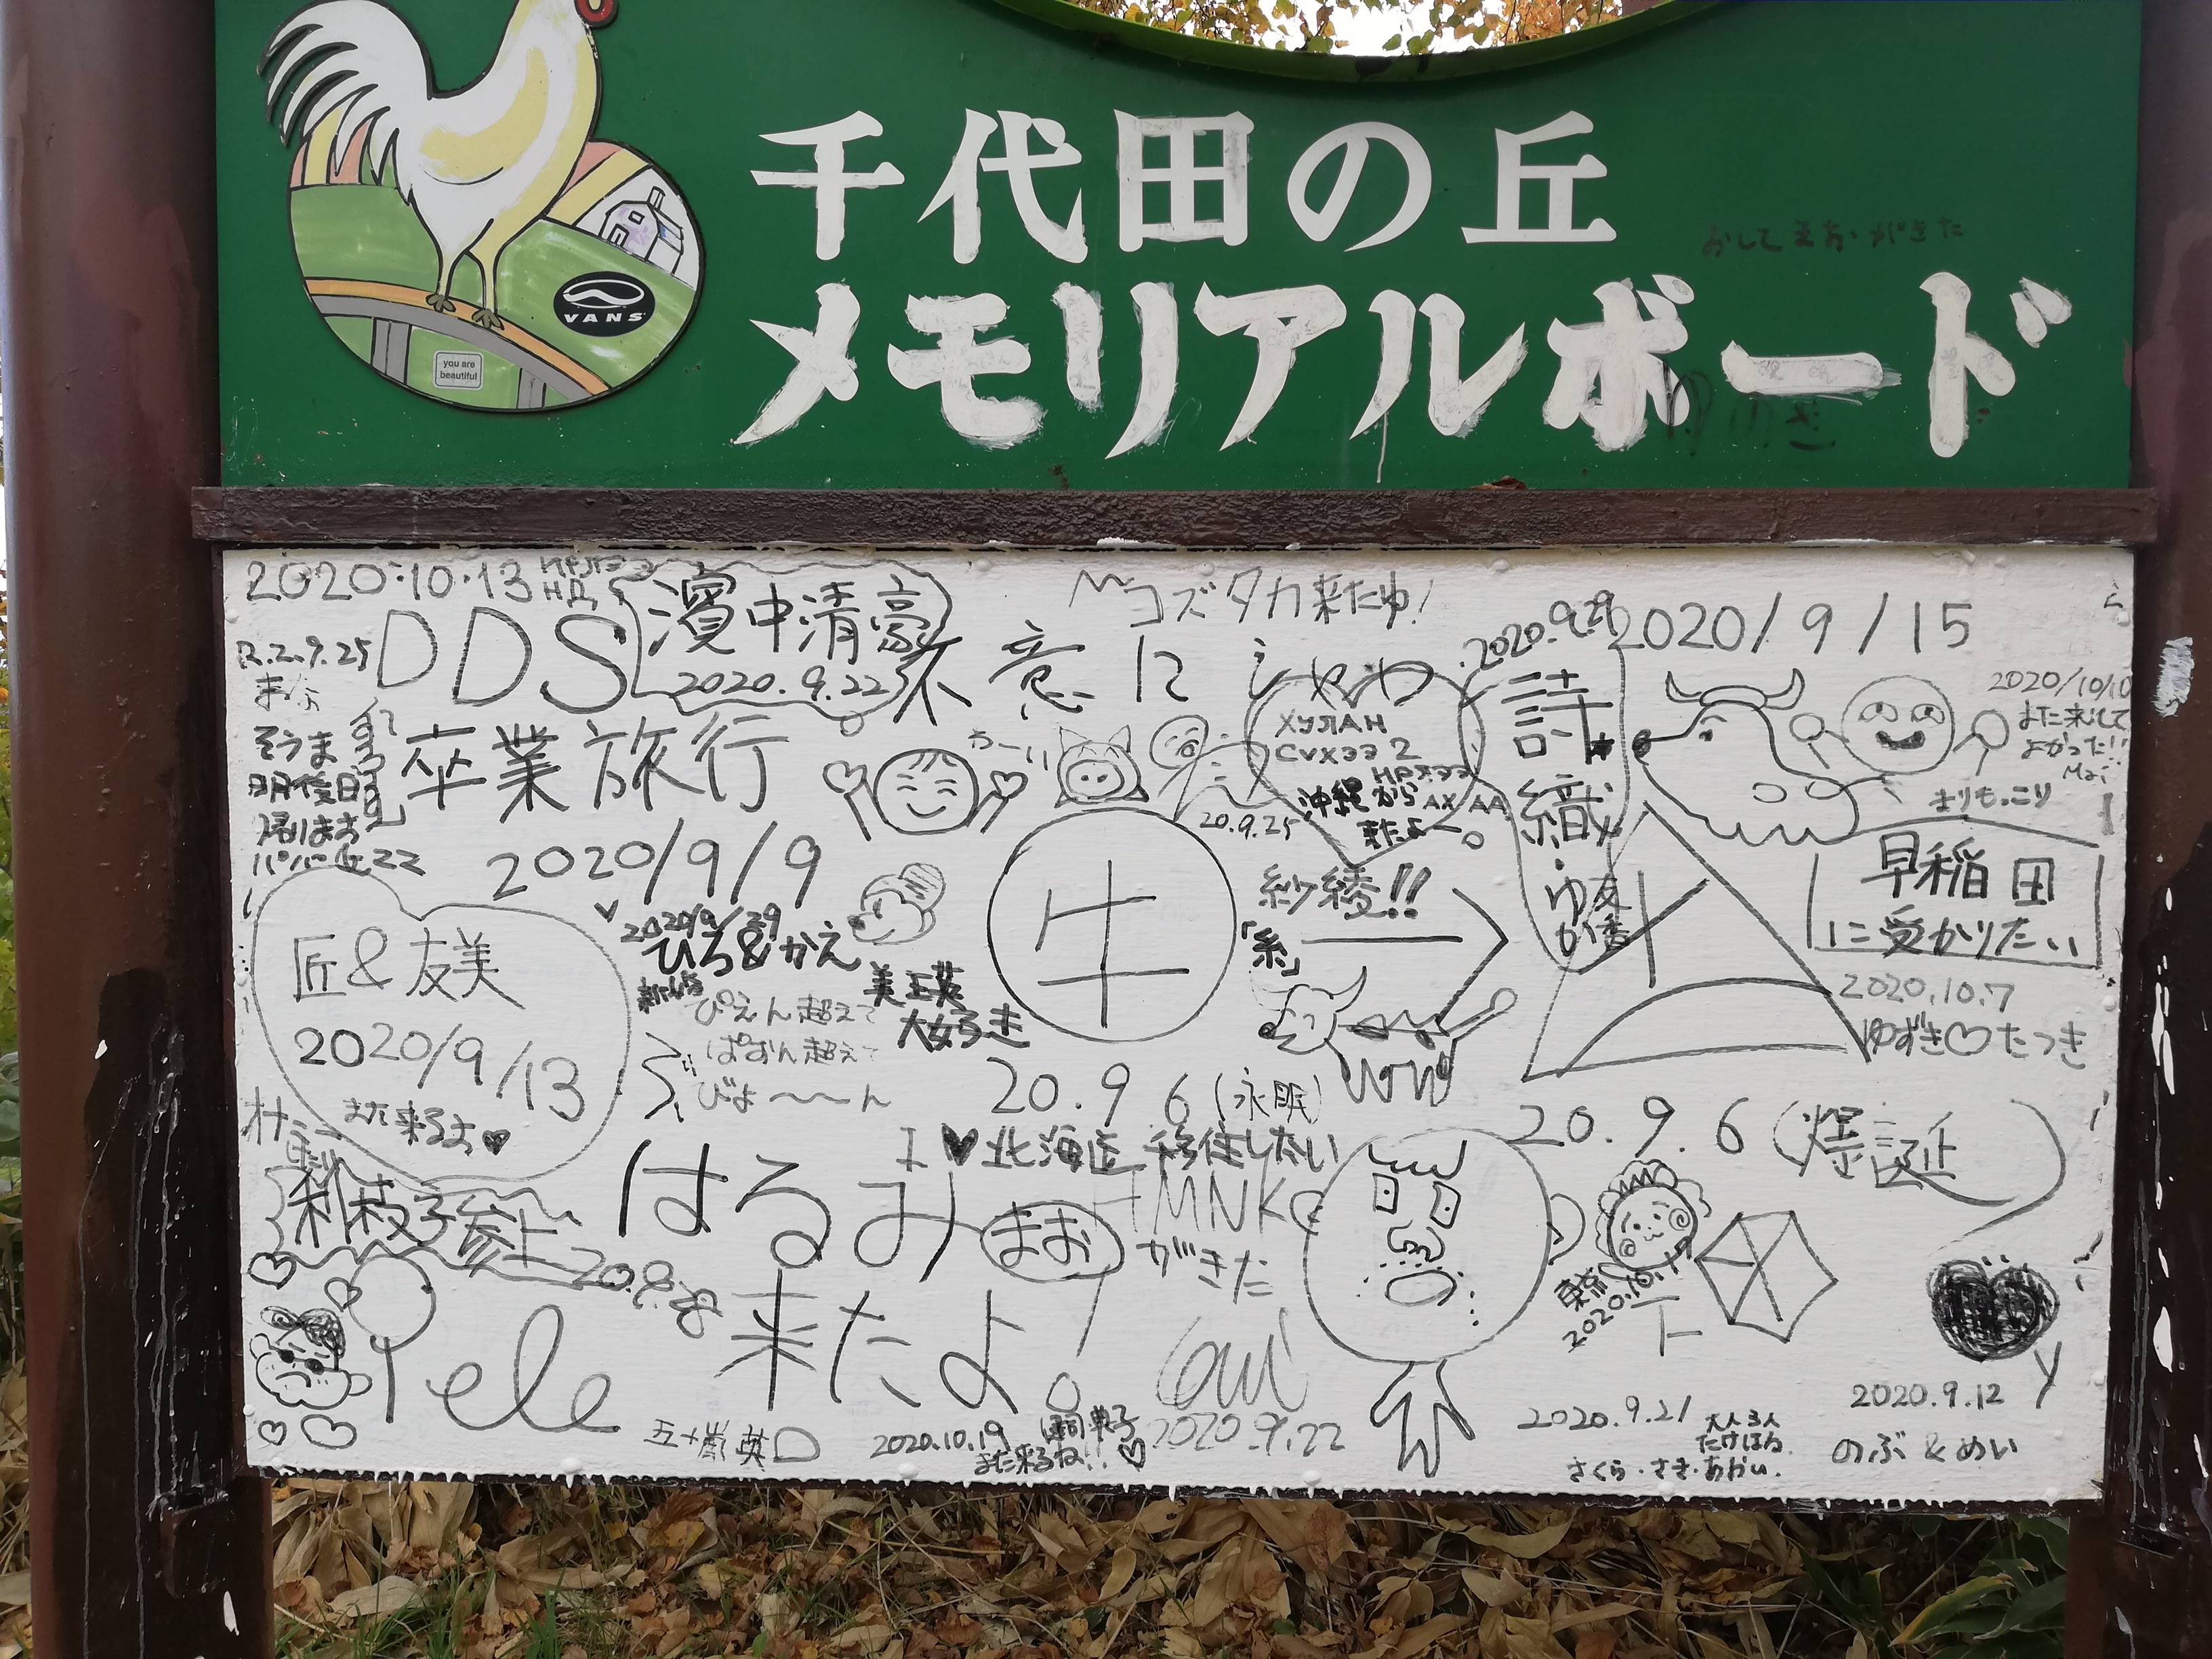 千代田の丘
メモリアルボード
VANS
you are
beautiful
2020.10.13
DDS
濱中清豪
2020.9.22
コズタカ来たゆ!
不意にシャわ
2020/9/15
R.2.9.25
そうま
明後日
帰ります
卒業旅行
2020/9/9
ХУЛАН
沖縄から
来たよー。
20.9.25
詩織
2020/10/10
また来れて
よかった!!
Mai
まりもっこり
早稲田
に受かりたい
2020.10.7
ゆずき♡たつき
匠&友美
2020/9/13
また来るよ♥
2020/9/29
ひろ&かえ
ぴえん超えて
ぱおん超えて
びよ〜〜ん
美瑛
大好き
牛
紗綾!!
「糸」
20.9.6(永眠)
20.9.6(爆誕)
I ♥ 北海道 移住したい
はるみ
来たよ。
まお
がきた
HMNK
参上
東京
2020.10.19
五十嵐英
2020.10.19
また来るね!!♡
2020.9.22
2020.9.21
大人3人
さくら・さき・あかい.
2020.9.12
のぶ&めい